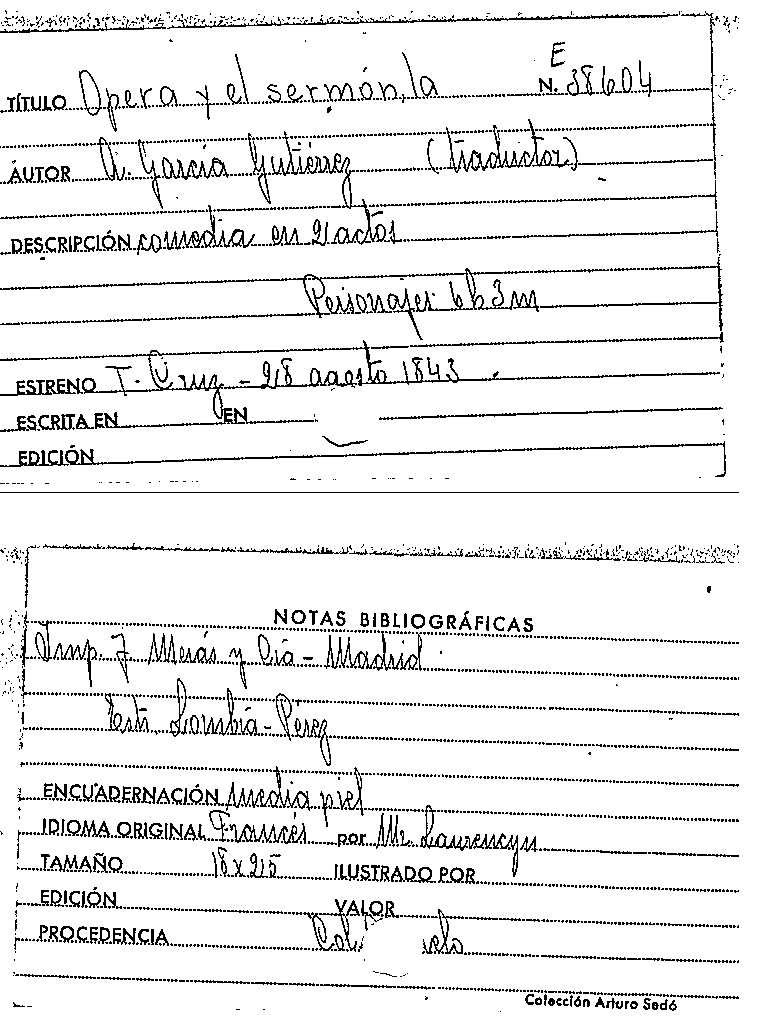 E
TÍTULO Opera y el sermón, la N. 38604
AUTOR A. García Gutiérrez (traductor)
DESCRIPCIÓN comedia en 2 actos
Personajes 6h 3m
ESTRENO T. Cruz - 28 agosto 1843.
ESCRITA EN EN
EDICIÓN
NOTAS BIBLIOGRÁFICAS
Imp. J. Merás y Cia - Madrid
Estr. Lombía - Pérez
ENCUADERNACIÓN media piel
IDIOMA ORIGINAL Francés por Mr. Laurencyn
TAMAÑO 18 x 25 ILUSTRADO POR
EDICIÓN VALOR
PROCEDENCIA
Colección Arturo Sedó